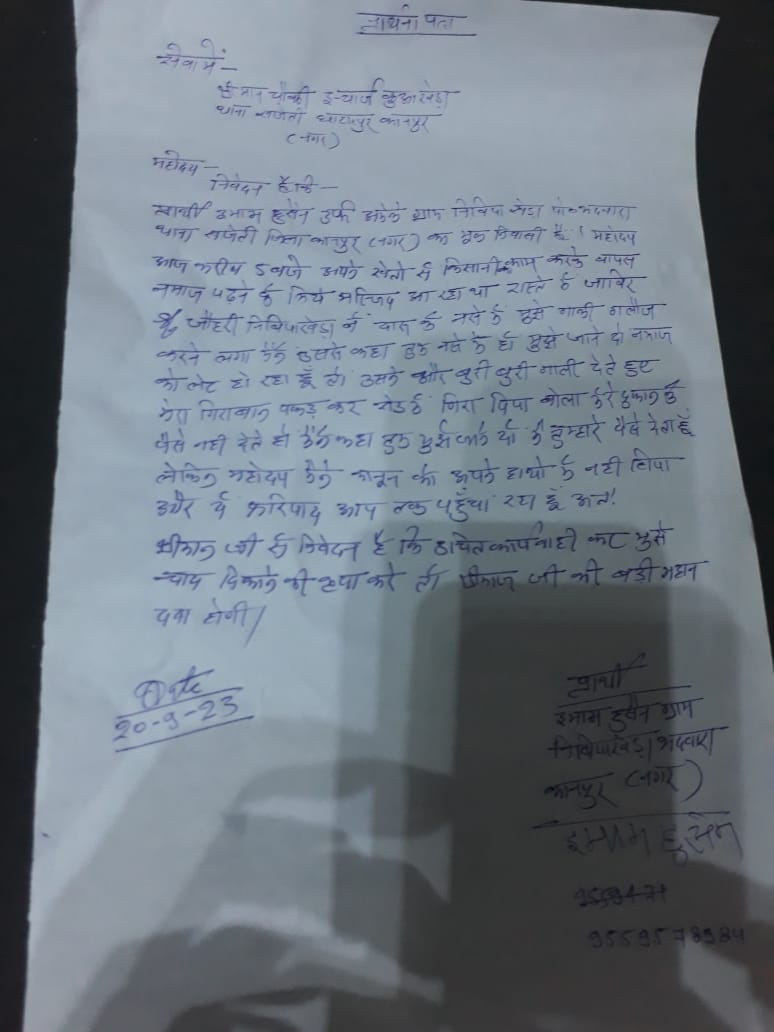 प्रार्थना पत्र
सेवा में —
श्रीमान चौकी इन्चार्ज कुआखेड़ा
थाना सजेती घाटमपुर कानपुर
(नगर)
महोदय —
निवेदन है कि —
प्रार्थी इमाम हुसैन उर्फ ग्राम निबियाखेड़ा पो० भदवारा
थाना सजेती जिला कानपुर (नगर) का मूल निवासी है। महोदय
आज करीब 5 बजे अपने खेतो से किसानी काम करके वापस
नमाज पढ़ने के लिये मस्जिद आ रहा था रास्ते में जाबिर
जौहरी निबियाखेड़ा ने दारू के नसे में मुझे गाली गलौज
करने लगा मैने उससे कहा तुम नसे में हो मुझे जाने दो नमाज
को लेट हो रहा हूँ तो उसने और बुरी बुरी गाली देते हुए
मेरा गिराबान पकड़ कर रोड में गिरा दिया बोला मेरे दुकान के
पैसे नही देते हो मैने कहा तुम मुझे जाने दो मै तुम्हारे पैसे देता हूँ
लेकिन महोदय मैने कानून को अपने हाथो में नही लिया
और ये फरियाद आप तक पहुँचा रहा हूँ अतः
श्रीमान जी से निवेदन है कि उचित कार्यवाही कर मुझे
न्याय दिलाने की कृपा करे तो श्रीमान जी की बड़ी महान
दया होगी।
Date
20-9-23
प्रार्थी
इमाम हुसैन ग्राम
निबियाखेड़ा भदवारा
कानपुर (नगर)
इमाम हुसेन
9559578984